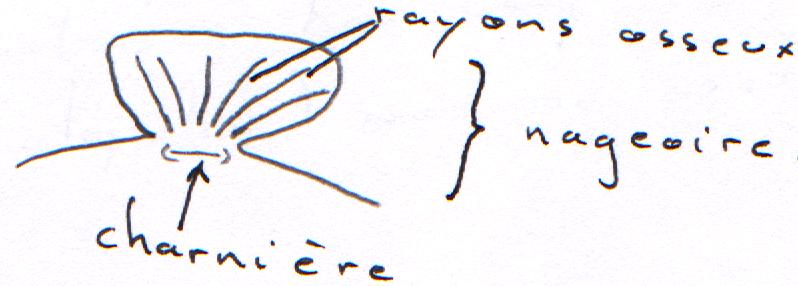 rayons osseux
nageoire
charnière